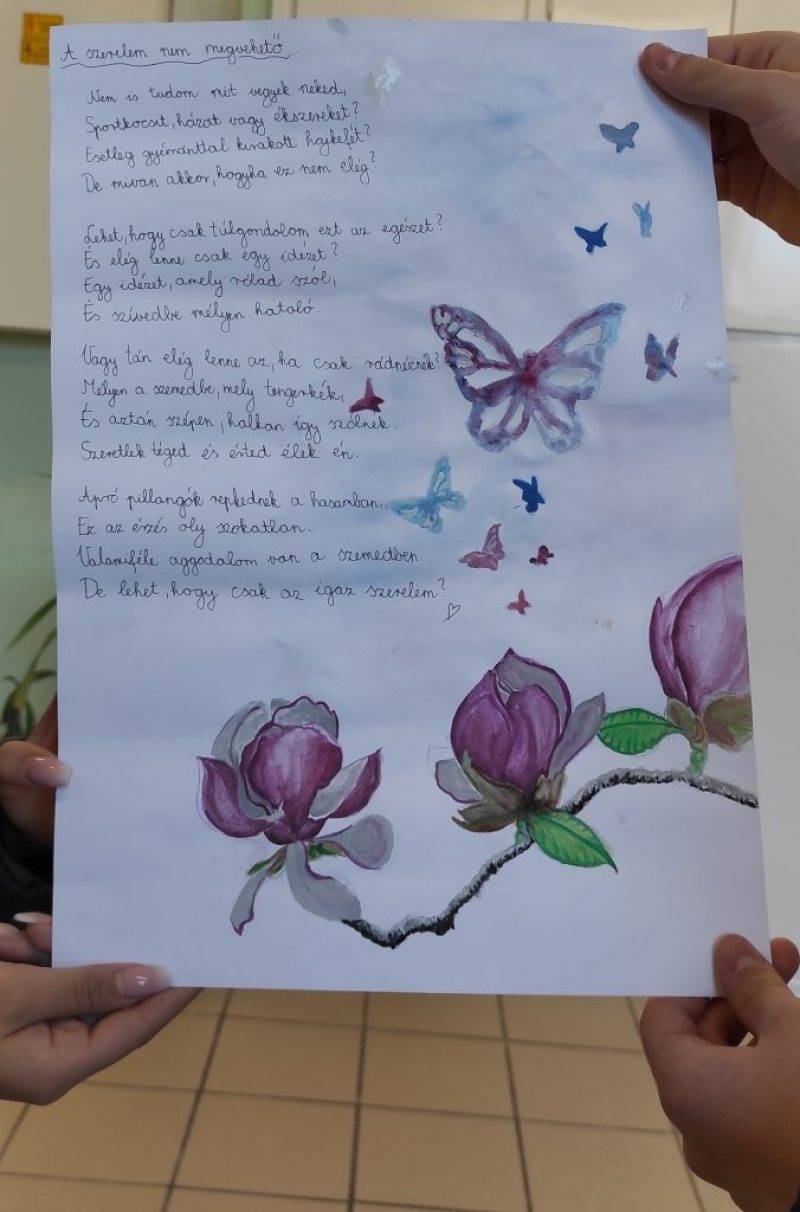 A szerelem nem megvehető
Nem is tudom mit vegyek neked,
Sportkocsit, házat vagy ékszereket?
Esetleg gyémánttal kirakott hajkefét?
De mivan akkor, hogyha ez nem elég?
Lehet, hogy csak túlgondolom ezt az egészet?
És elég lenne csak egy idézet?
Egy idézet, amely rólad szól,
És szívedbe mélyen hatoló.
Vagy tán elég lenne az, ha csak rádnéznék?
Mélyen a szemedbe, mely tengerkék,
És aztán szépen, halkan így szólnék.
Szeretlek téged és érted élek én.
Apró pillangók repkednek a hasamban,
Ez az érzés oly szokatlan.
Valamiféle aggodalom van a szemedben
De lehet, hogy csak az igaz szerelem?